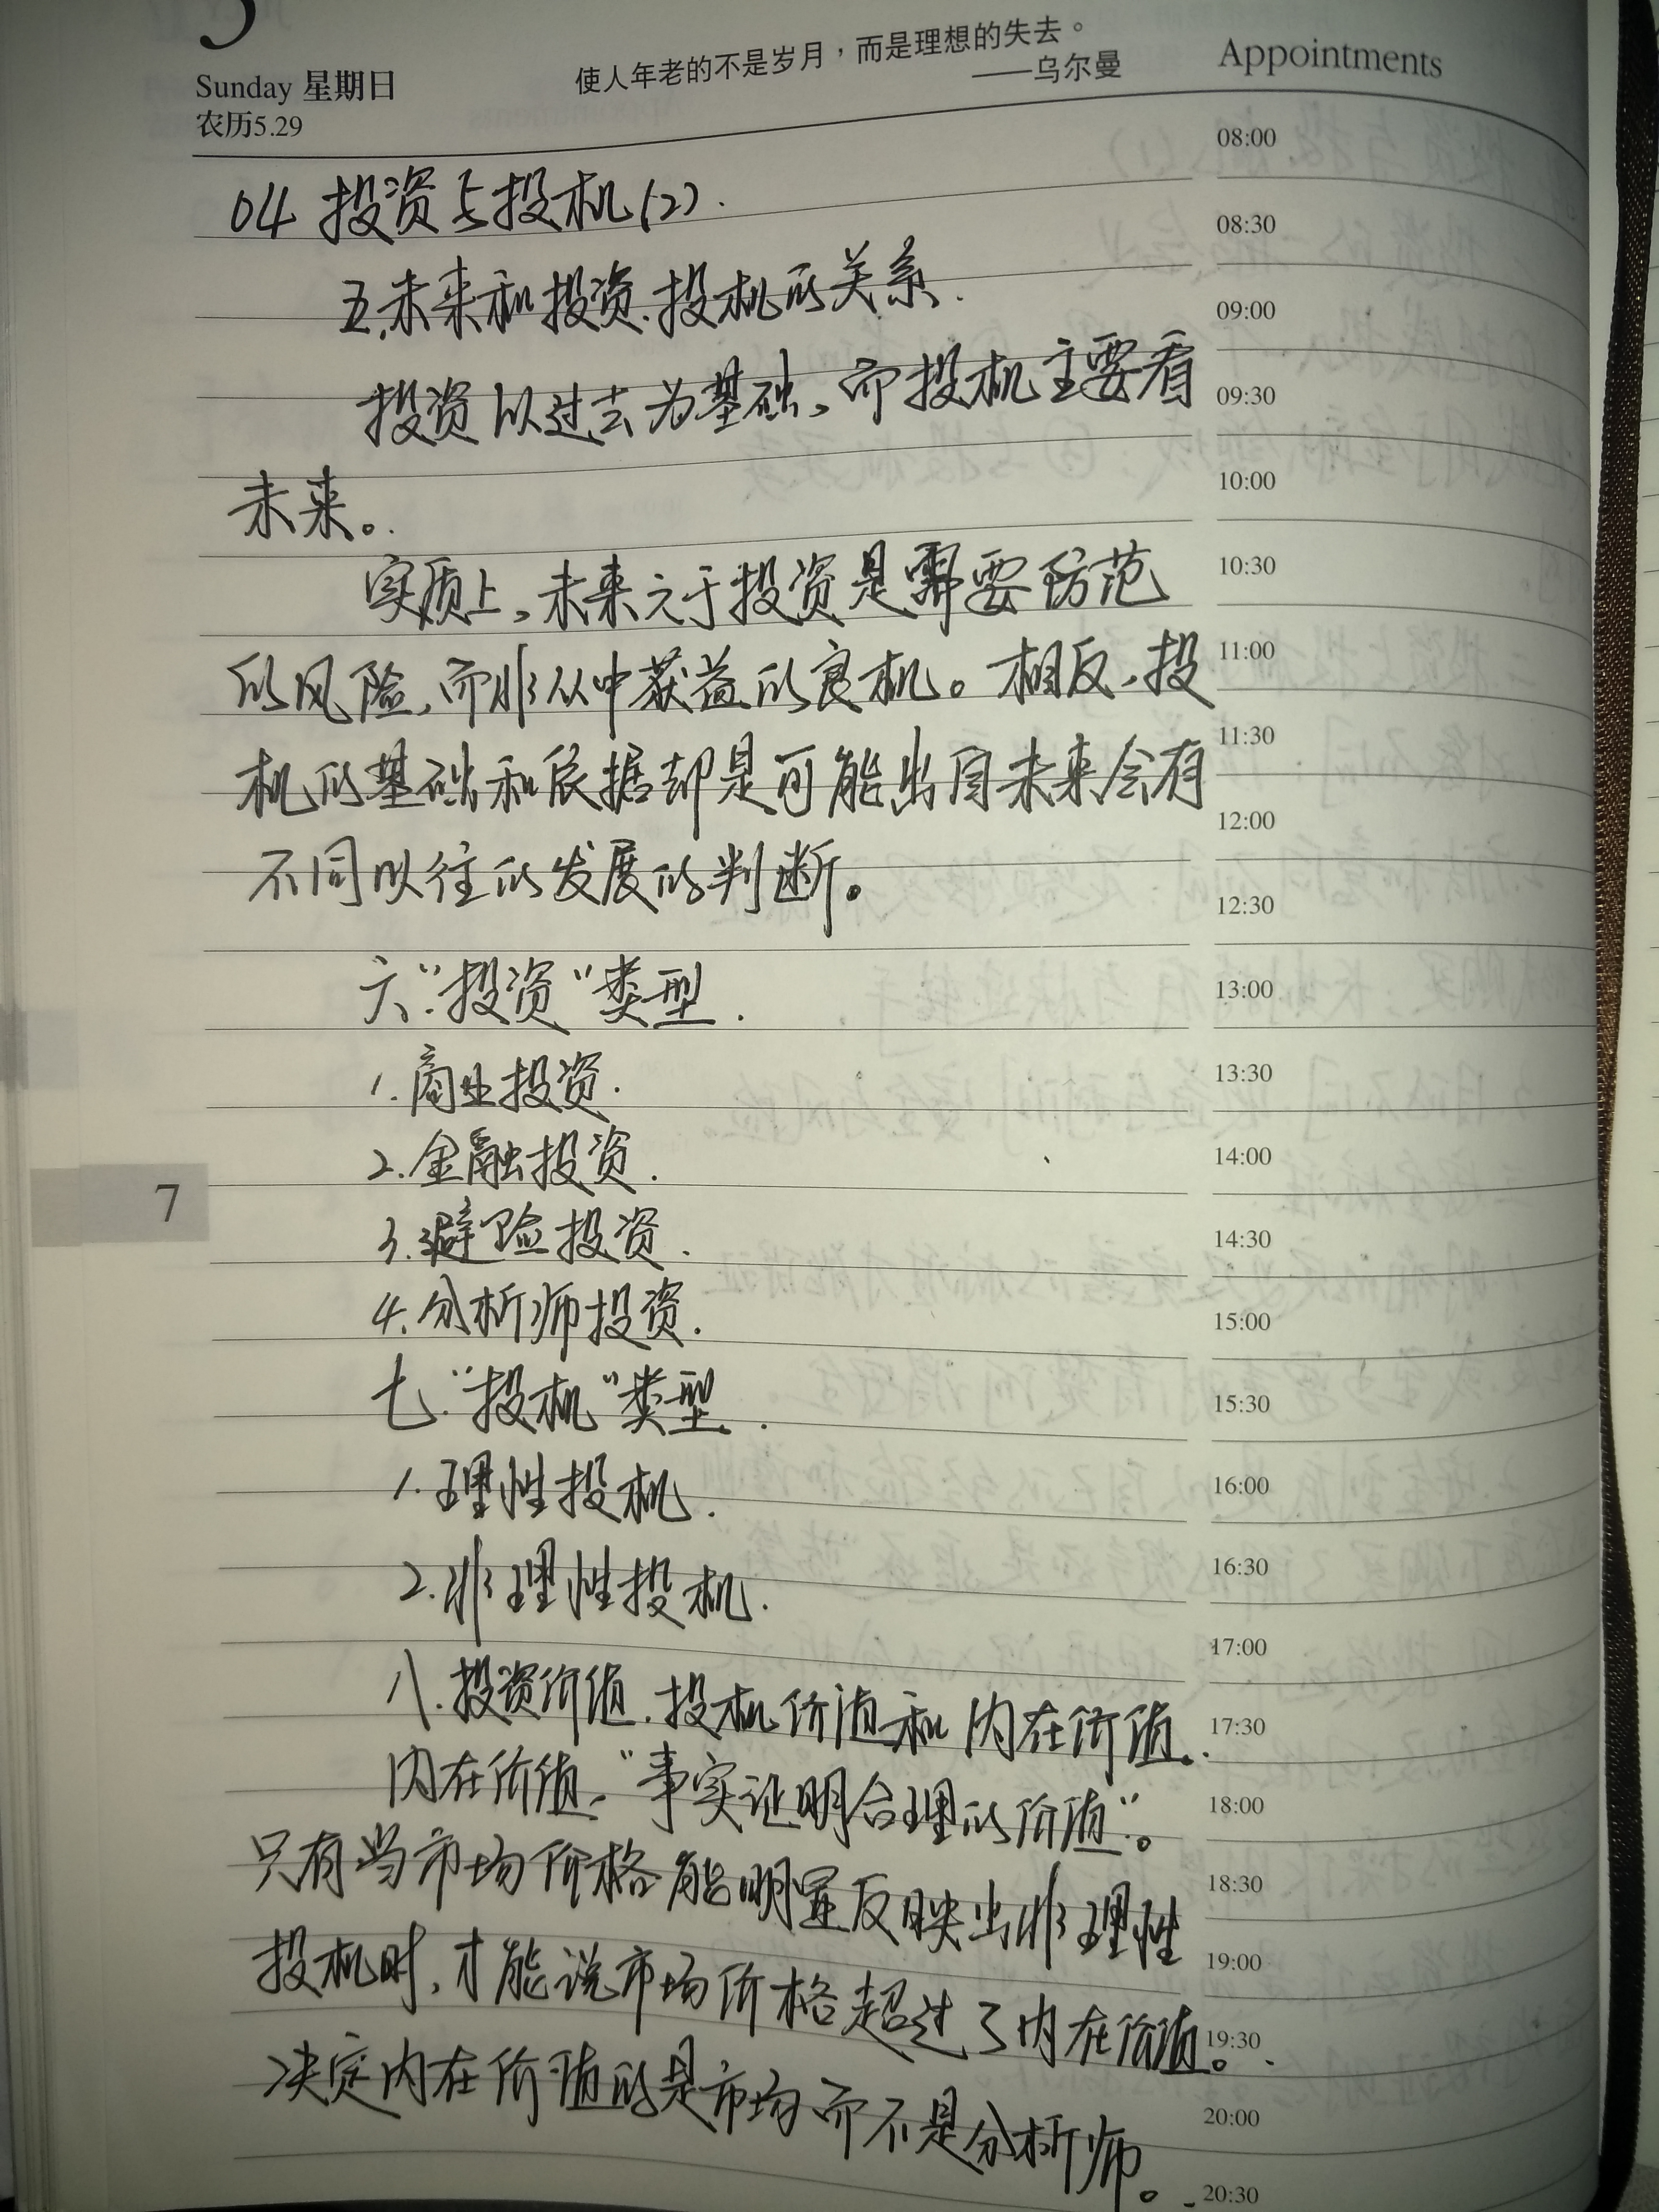 Sunday 星期日
农历5.29
使人年老的不是岁月，而是理想的失去。
——乌尔曼
Appointments
04 投资与投机(2).
五.未来和投资.投机的关系.
投资以过去为基础，而投机主要看
未来。
实质上，未来之于投资是需要防范
的风险，而非从中获益的良机。相反，投
机的基础和依据却是可能出自未来会有
不同以往的发展的判断。
六."投资"类型.
1.商业投资.
2.金融投资.
3.避险投资.
4.分析师投资.
七."投机"类型.
1.理性投机.
2.非理性投机.
八.投资价值.投机价值和内在价值.
内在价值，"事实证明合理的价值"。
只有当市场价格能明显反映出非理性
投机时，才能说市场价格超过了内在价值。
决定内在价值的是市场而不是分析师。
7
08:00
08:30
09:00
09:30
10:00
10:30
11:00
11:30
12:00
12:30
13:00
13:30
14:00
14:30
15:00
15:30
16:00
16:30
17:00
17:30
18:00
18:30
19:00
19:30
20:00
20:30